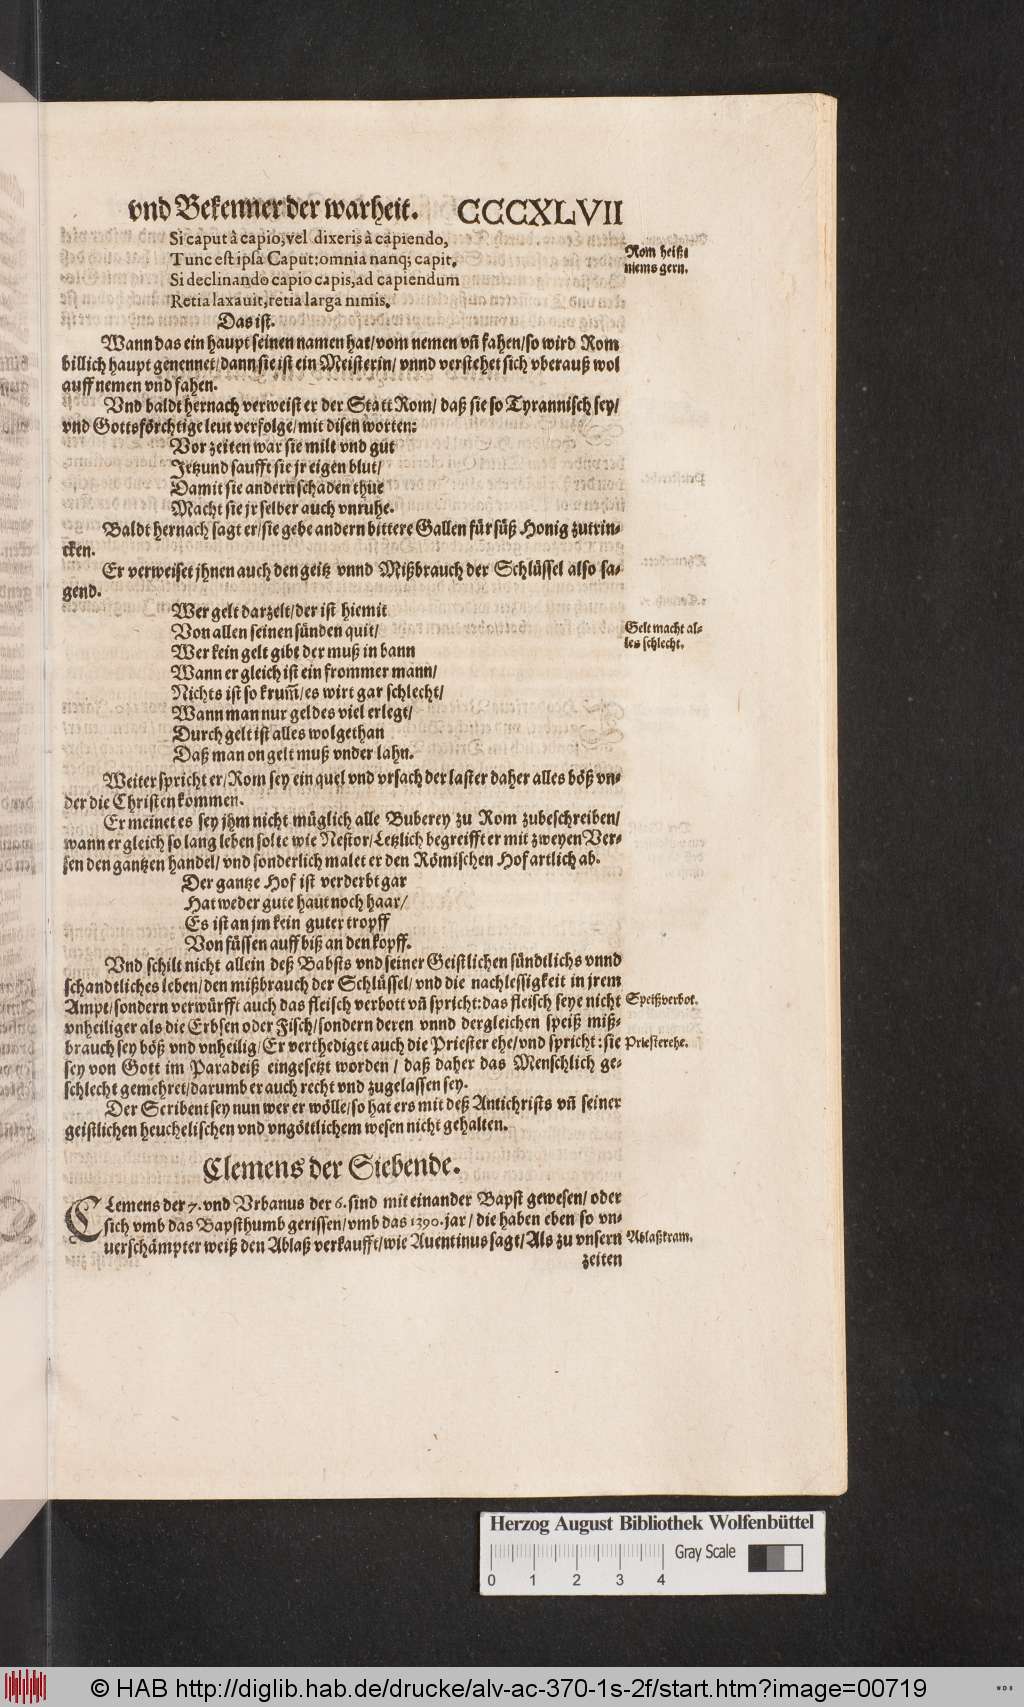 vnd Bekenner der warheit. CCCXLVII
Si caput à capio, vel dixeris à capiendo,
Tunc est ipsa Caput: omnia nanq; capit.
Si declinando capio capis, ad capiendum
Retia laxauit, retia larga nimis.
Rom heißt
niems gern.
Das ist.
Wann das ein haupt seinen namen hat/vom nemen vñ fahen/so wird Rom
billich haupt genennet/dann sie ist ein Meisterin/ vnnd verstehet sich vberauß wol
auff nemen vnd fahen.
Vnd baldt hernach verweist er der Statt Rom/ daß sie so Tyrannisch sey/
vnd Gottsförchtige leut verfolge/mit disen worten:
Vor zeiten war sie milt vnd gut
Jetzund saufft sie jr eigen blut/
Damit sie andern schaden thue
Macht sie jr selber auch vnruhe.
Baldt hernach sagt er/sie gebe andern bittere Gallen für süß Honig zutrin-
cken.
Er verweiset jhnen auch den geitz vnnd Mißbrauch der Schlüssel also sa-
gend.
Wer gelt darzelt/der ist hiemit
Von allen seinen sünden quit/
Wer kein gelt gibt der muß in bann
Wann er gleich ist ein frommer mann/
Nichts ist so krum̃/es wirt gar schlecht/
Wann man nur geldes viel erlegt/
Durch gelt ist alles wolgethan
Daß man on gelt muß vnder lahn.
Gelt macht al-
les schlecht.
Weiter spricht er/Rom sey ein quel vnd vrsach der laster daher alles böß vn-
der die Christen kommen.
Er meinet es sey jhm nicht müglich alle Buberey zu Rom zubeschreiben/
wann er gleich so lang leben solte wie Nestor/Letzlich begreifft er mit zweyen Ver-
sen den gantzen handel/ vnd sonderlich malet er den Römischen Hof artlich ab.
Der gantze Hof ist verderbt gar
Hat weder gute haut noch haar/
Es ist an jm kein guter tropff
Von füssen auff biß an den kopff.
Vnd schilt nicht allein deß Babsts vnd seiner Geistlichen sündtlichs vnnd
schandtliches leben/den mißbrauch der Schlüssel/vnd die nachlessigkeit in jrem
Ampt/sondern verwürfft auch das fleisch verbott vñ spricht:das fleisch seye nicht
vnheiliger als die Erbsen oder Fisch/sondern deren vnnd dergleichen speiß miß-
brauch sey böß vnd vnheilig/Er verthediget auch die Priester ehe/vnd spricht:sie
sey von Gott im Paradeiß eingesetzt worden / daß daher das Menschlich ge-
schlecht gemehret/darumb er auch recht vnd zugelassen sey.
Speißverbot.
Priesterehe.
Der Scribent sey nun wer er wölle/so hat ers mit deß Antichrists vñ seiner
geistlichen heuchelischen vnd vngöttlichem wesen nicht gehalten.
Clemens der Siebende.
CLemens der 7. vnd Vrbanus der 6. sind mit einander Bapst gewesen/ oder
sich vmb das Bapsthumb gerissen/vmb das 1390. jar/ die haben eben so vn-
uerschämpter weiß den Ablaß verkaufft/wie Auentinus sagt/Als zu vnsern
Ablaßkram.
zeiten
Herzog August Bibliothek Wolfenbüttel
Gray Scale
0 1 2 3 4
© HAB http://diglib.hab.de/drucke/alv-ac-370-1s-2f/start.htm?image=00719
WDB